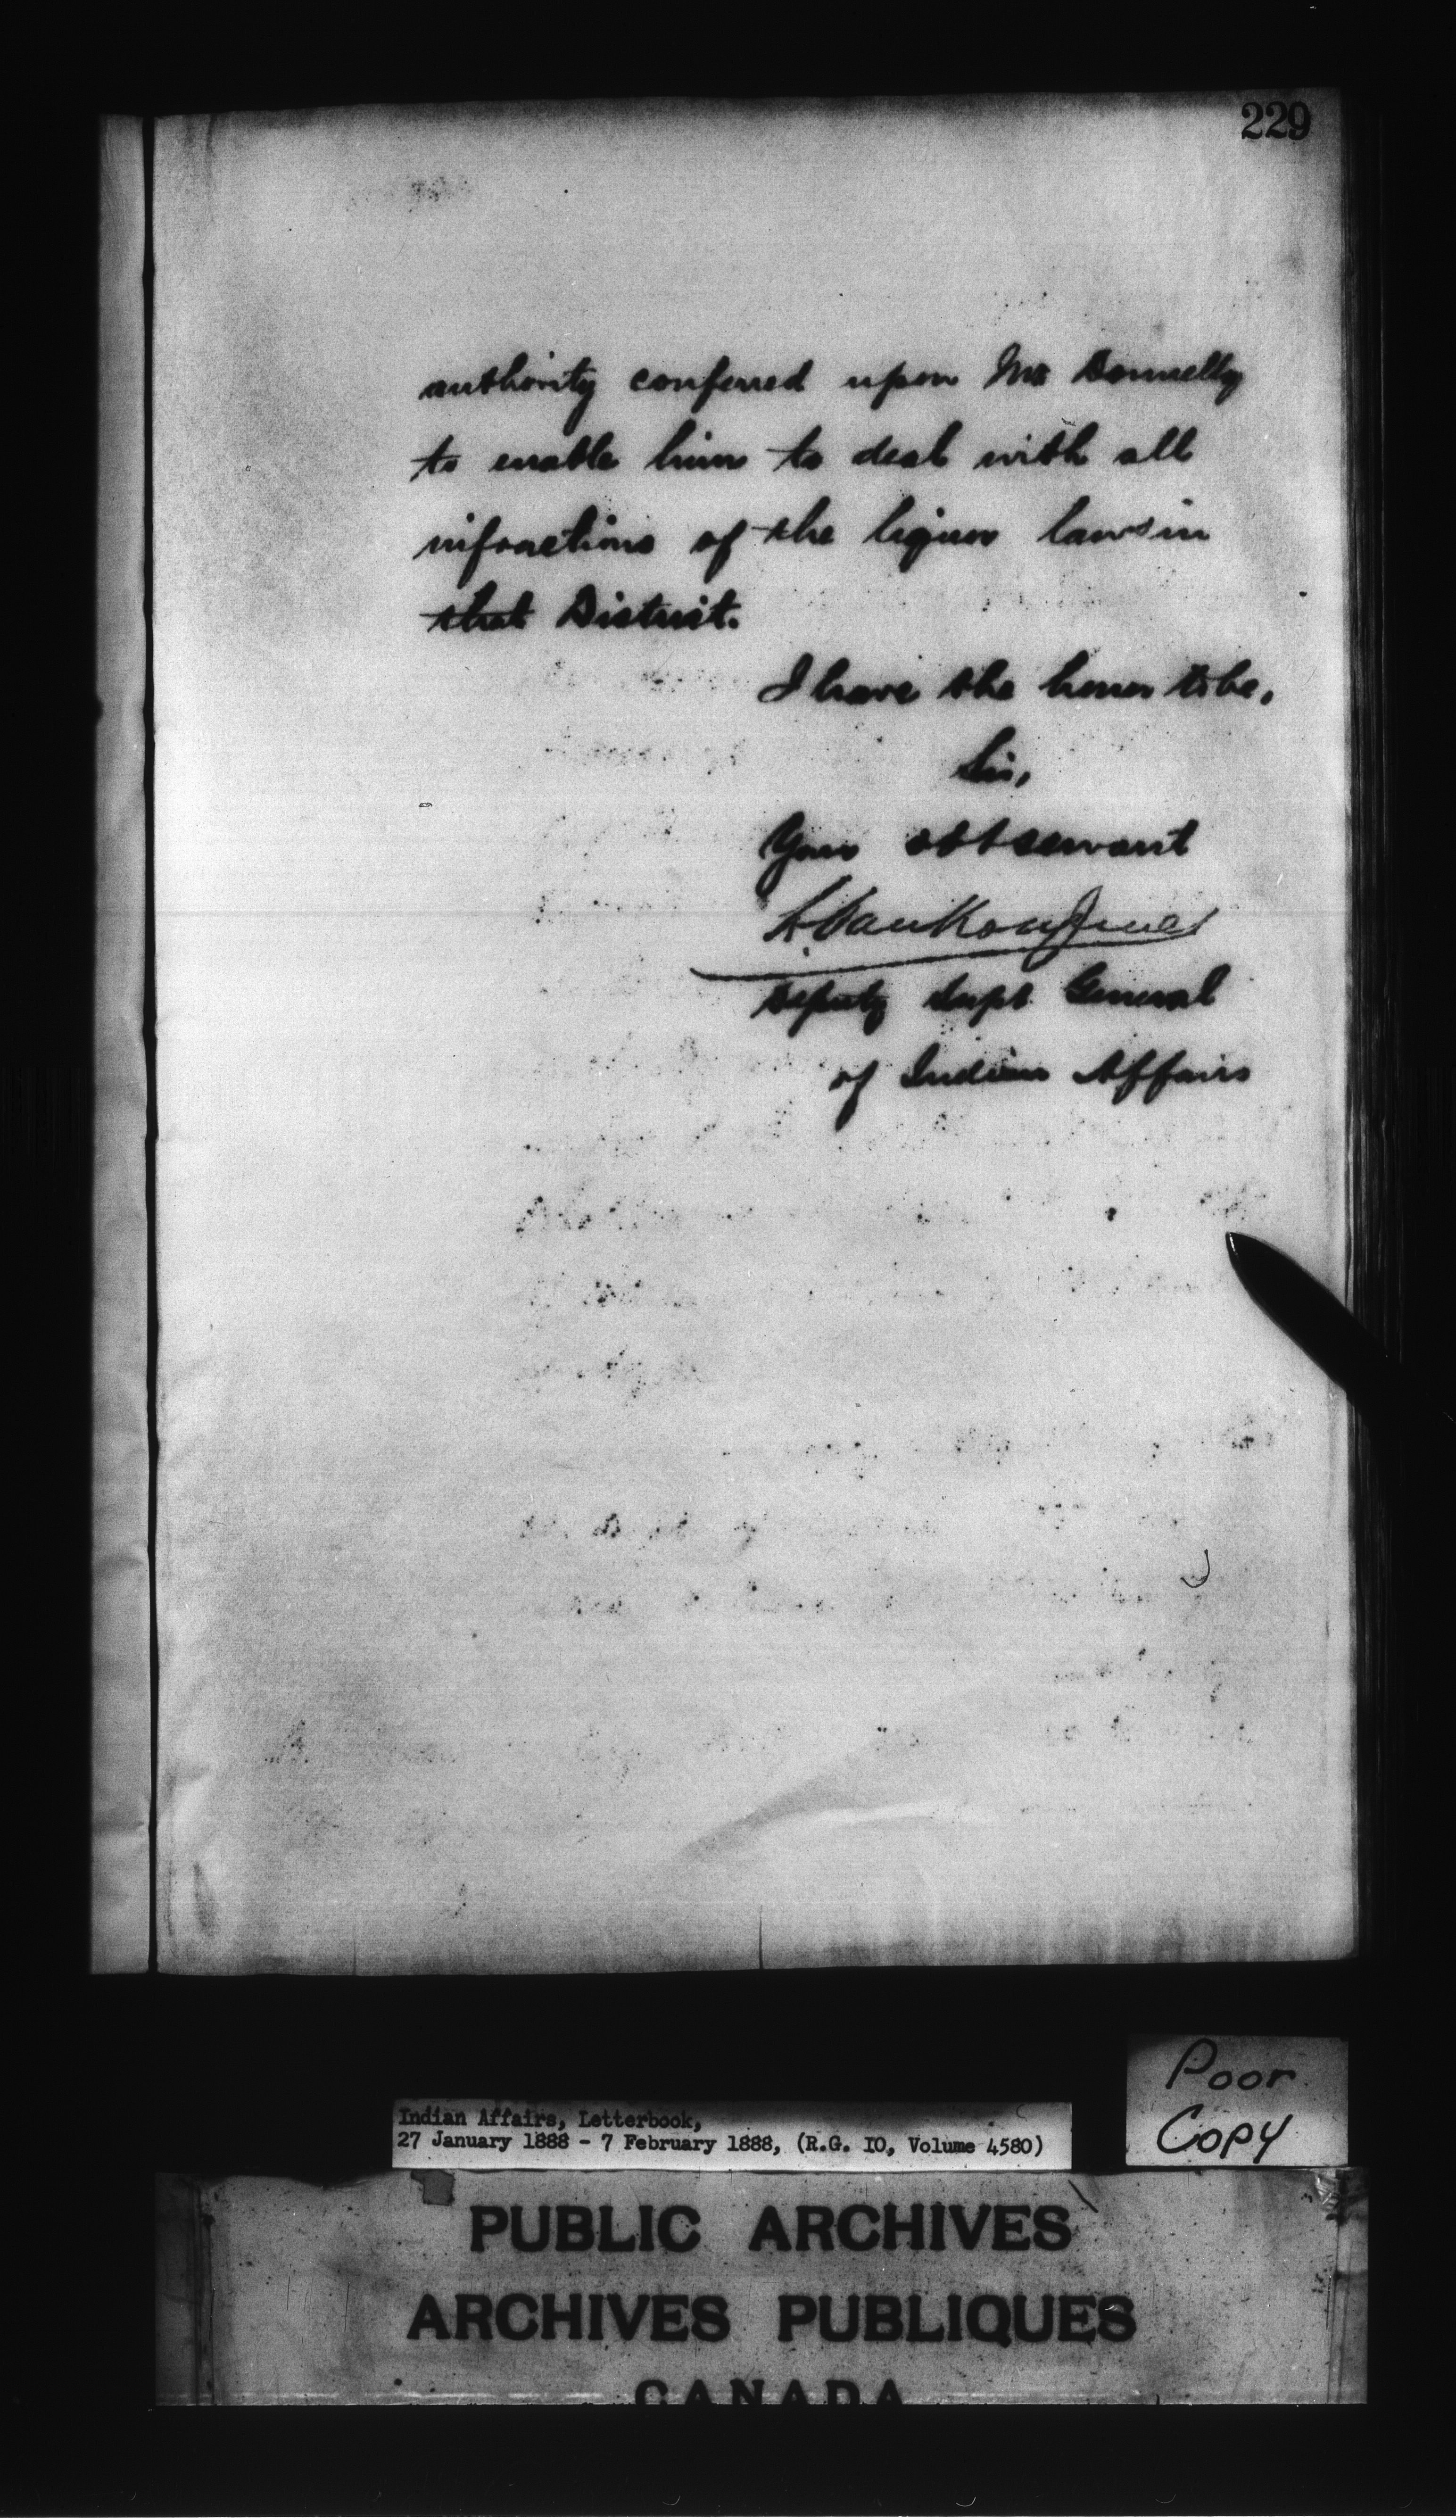 229
authority conferred upon Mr Donnelly
to enable him to deal with all
infractions of the liquor laws in
that District.
I have the honor to be,
Sir,
Your obt servant
L. VanKoughnet
Deputy Supt General
of Indian Affairs
Poor
Copy
Indian Affairs, Letterbook,
27 January 1888 - 7 February 1888, (R.G. IO, Volume 4580)
PUBLIC ARCHIVES
ARCHIVES PUBLIQUES
CANADA